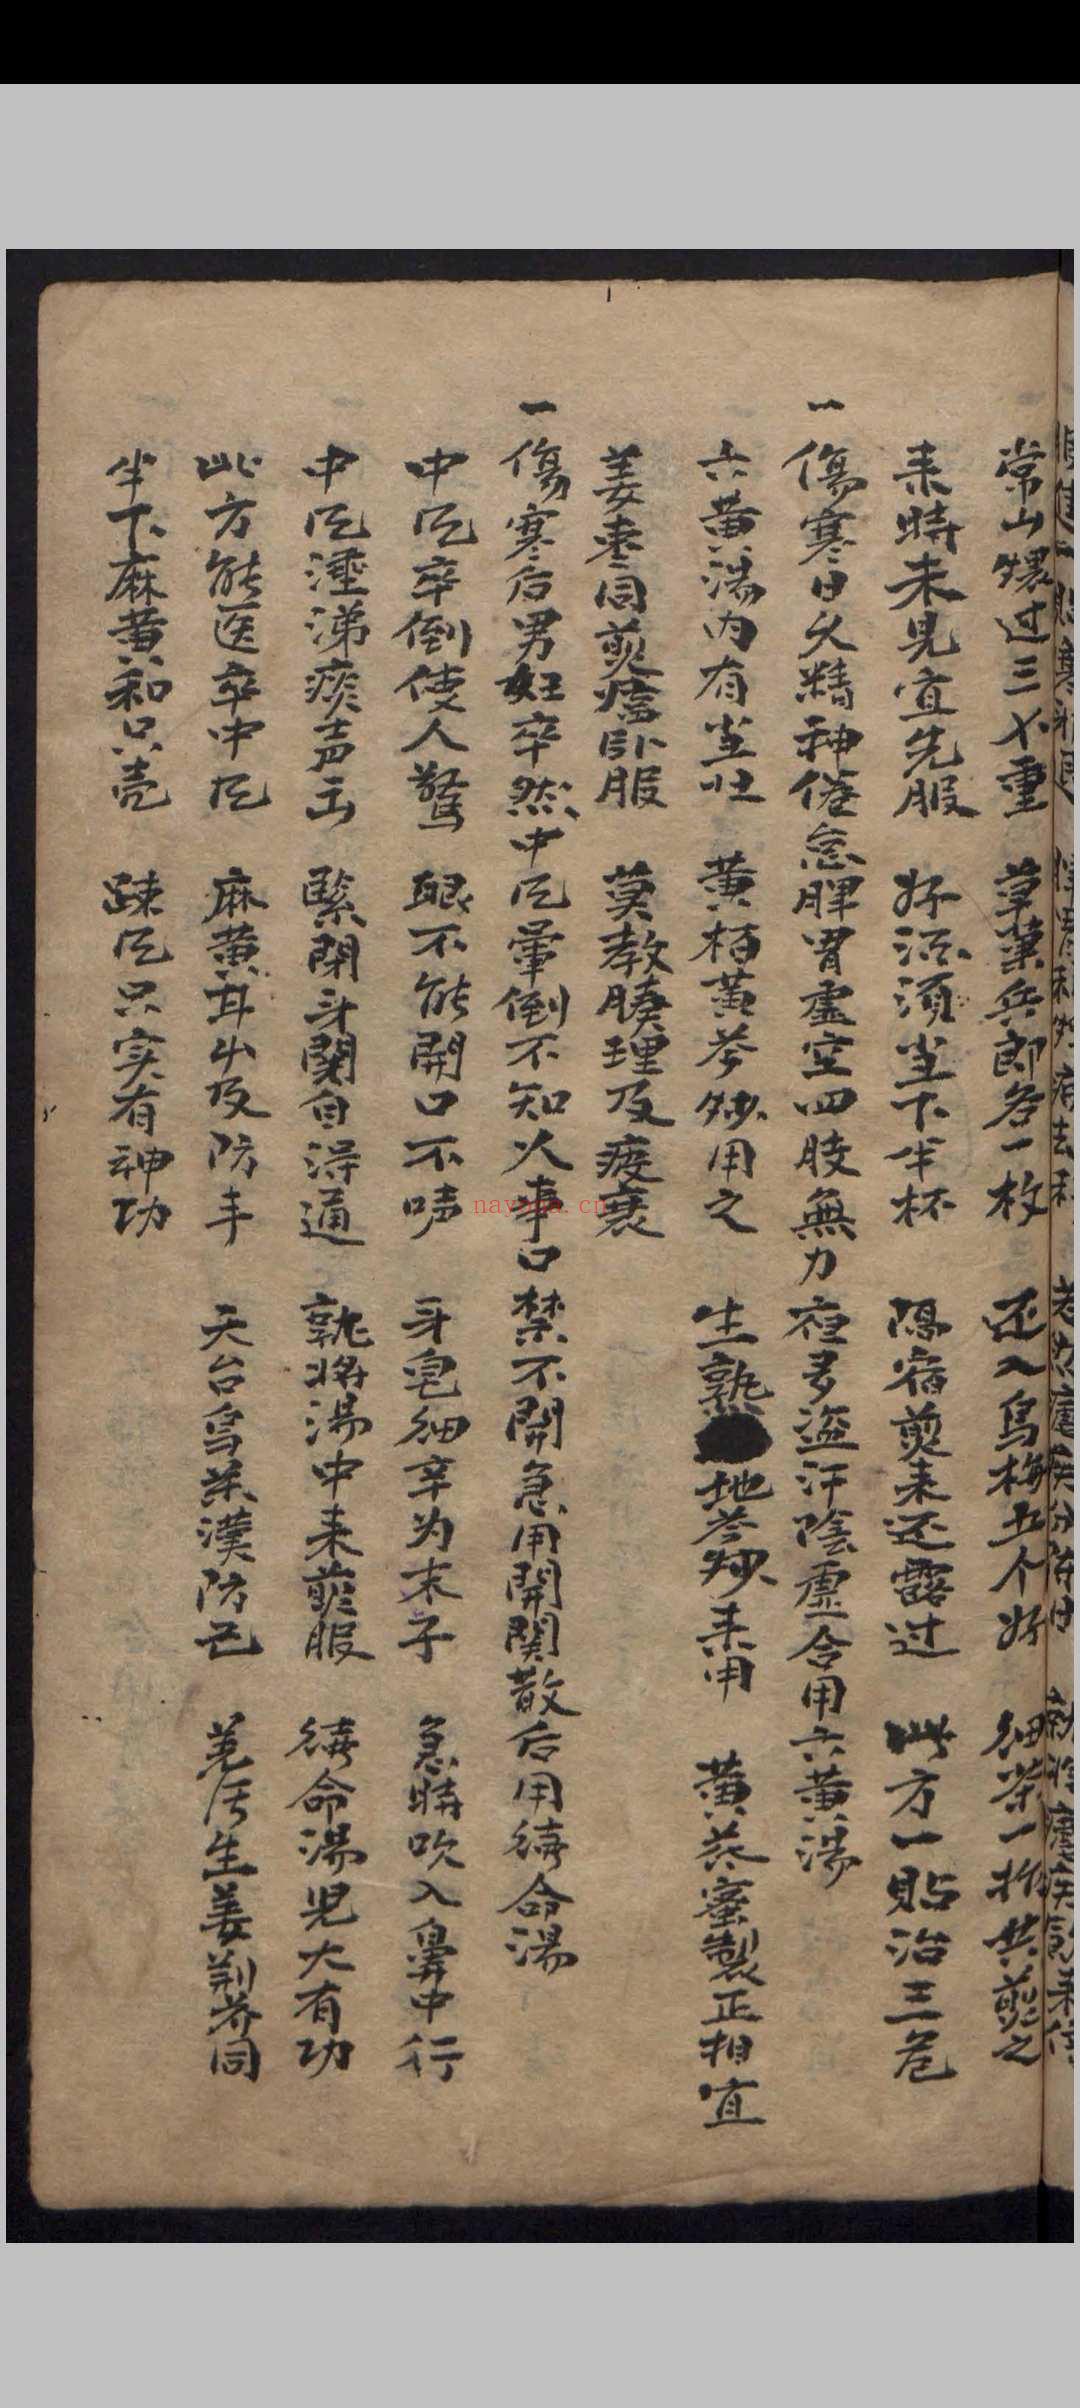 常山煨过三个重　草菓兵郎各一枚　还入烏梅五个好　細茶一撮共煎之
耒時未見宜先服　好酒須坐下半杯　隔宿煎耒还露过　此方一貼治三危
一傷寒日久精神倦怠脾胃虚空四肢無力夜多盗汗陰虛合用六黄湯
六黄湯内有　黄栢黄芩炒用之　生熟地芩炒耒用　黄芪蜜製正相宜
姜枣同煎臨卧服　莫教腠理及衰
一傷寒后男妇卒然中风暈倒不知人事口禁不開急用開関散后用續命湯
中风卒倒使人驚　眼不能開口不声　牙皂細辛为末子　急時吹入鼻中行
中风涶涕痰声　緊閉牙関自得通　孰将湯中耒服　續命湯児大有功
此方能医卒中风　麻黄及防丰　天台烏茱漢防己　羌活生姜荆芥同
半下麻黄和只壳　疎风只实有神功
nayona.cn